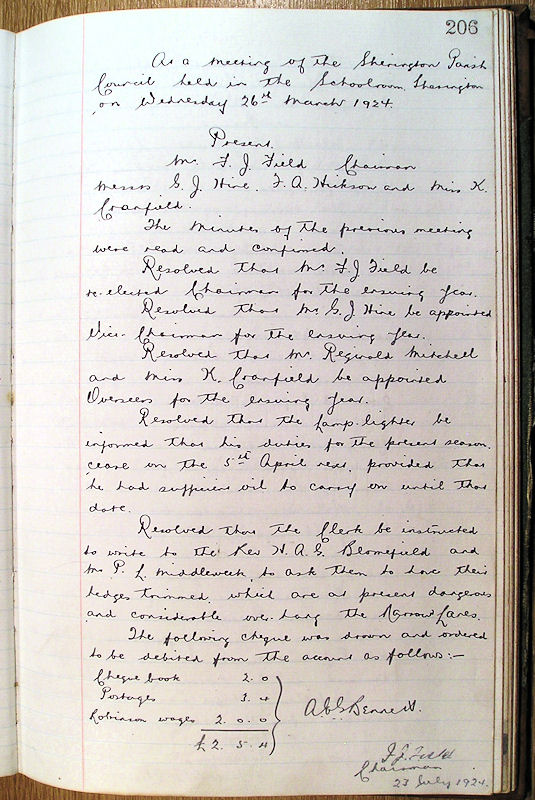 206
At a meeting of the Sherington Parish
Council held in the Schoolroom, Sherington
on Wednesday 26th March 1924.
Present.
Mr. F. J. Field Chairman
Messrs G. J. Hine, F. A. Hickson and Miss K.
Cranfield.
The Minutes of the previous meeting
were read and confirmed.
Resolved that Mr. F J Field be
re-elected Chairman for the ensuing Year.
Resolved that Mr G. J Hine be appointed
Vice-Chairman for the ensuing Year.
Resolved that Mr. Reginald Mitchell
and Miss K. Cranfield be appointed
Overseers for the ensuing Year.
Resolved that the Lamp-lighter be
informed that his duties for the present season,
cease on the 5th April next, provided that
he had sufficient oil to carry on until that
date.
Resolved that the Clerk be instructed
to write to the Rev H. A. G. Blomefield and
Mr P. L. Middleweek, to ask them to have their
hedges trimmed, which are at present dangerous
and considerable over-hang the Narrow Lanes.
The following cheque was drawn and ordered
to be debited from the account as follows:-
Cheque book 2. 0
Postages 3. 4
Robinson wages 2. 0. 0
£2. 5. 4
Bennett.
F. J. Field
Chairman
23 July 1924.